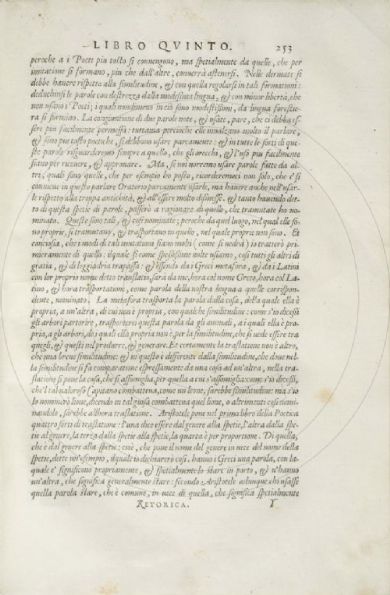 LIBRO QVINTO. 253
peroche a i Poeti piu tosto si conuengono, ma spetialmente da quelle, che per
imitatione si formano, piu che dall'altre, conuerrà astenersi. Nelle deriuate si
debbe hauere rispetto alla similitudine, & con quella regolarsi in tali formationi:
deduchinsi le parole con destrezza dalla medesima lingua, & con minor libertà, che
non usano i Poeti; i quali nondimeno in ciò sono modestissimi, da lingua forestie-
ra si formino. La congiuntione di due parole note, & usate, pare, che ci debba es-
sere piu facilmente permessa: tuttauia percioche elle inalzano molto il parlare,
& sono piu tosto poetiche, si debbono usare parcamente: & in tutte le sorti di que-
ste parole risguarderemo sempre a quello, che gli orecchi, & l'uso piu facilmente
siano per riceuere, & approuare. Ma, se noi uorremo usare parole fatte da al-
tri, quali sono quelle, che per esempio ho posto, ricorderemoci non solo, che e'si
conuiene in questo parlare Oratorio parcamente usarle, ma hauere anche nell'usar-
le rispetto alla troppa antichità, & all'essere molto dismesse. & tanto hauendo det-
to di questa spetie di parole, passerò a ragionare di quelle, che tramutate ho no-
minate. Queste sono tali, & così nominate; peroche da quel luogo, nel qual elle so-
no proprie, si tramutano, & trasportano in quello, nel quale proprie non sono. Et
conciosia, che i modi di tali mutationi siano molti (come si uedrà) io tratterò pri-
mieramente di quello: il quale si come spessissime uolte usiamo, così tutti gli altri di
gratia, & di leggiadria trapassa: & essendo da i Greci metafora, & da i Latini
con lor proprio nome detto translatio, sarà da me, hora col nome Greco, hora col La-
tino, & hora trasportatione, come parola della nostra lingua a quelle corrispon-
dente, nominato. La metafora trasporta la parola dalla cosa, della quale ella è
propria, a un'altra, di cui non è propria, con qualche similitudine: come s'io dicessi
gli arbori partorire, trasporterei questa parola da gli animali, a i quali ella è pro-
pria, a gli arbori, de i quali ella propria non è, per la similitudine, che si uede essere tra
quegli, & questi nel produrre, & generare. Et certamente la traslatione non è altro,
che una breue similitudine: & in questo è differente dalla similitudine, che doue nel-
la similitudine si fa comparatione espressamente da una cosa ad un'altra, nella tra-
slatione si pone la cosa, che si assomiglia, per quella a cui s'assomiglia. come s'io dicessi,
che'l tal ualoroso Capitano combatteua, come un leone, sarebbe similitudine: ma s'io
lo nominassi leone, dicendo in tal guisa combatteua quel leone, o altrimenti così nomi-
nandolo, sarebbe allhora traslatione. Aristotele pone nel primo libro della Poetica
quattro sorti di traslatione: l'una dice essere dal genere alla spetie, l'altra dalla spe-
tie al genere, la terza dalla spetie alla spetie, la quarta è per proportione. Di quella,
che è dal genere alla spetie: cioè, che pone il nome del genere in uece del nome della
spetie, dette un'esempio, il quale io dichiarerò così. hanno i Greci una parola, con la-
quale e' significano propriamente, & spetialmente lo stare in porto, & n'hanno
un'altra, che significa generalmente stare: secondo Aristotele adunque chi usasse
quella parola stare, che è comune, in uece di quella, che significa spetialmente
RETORICA. Y